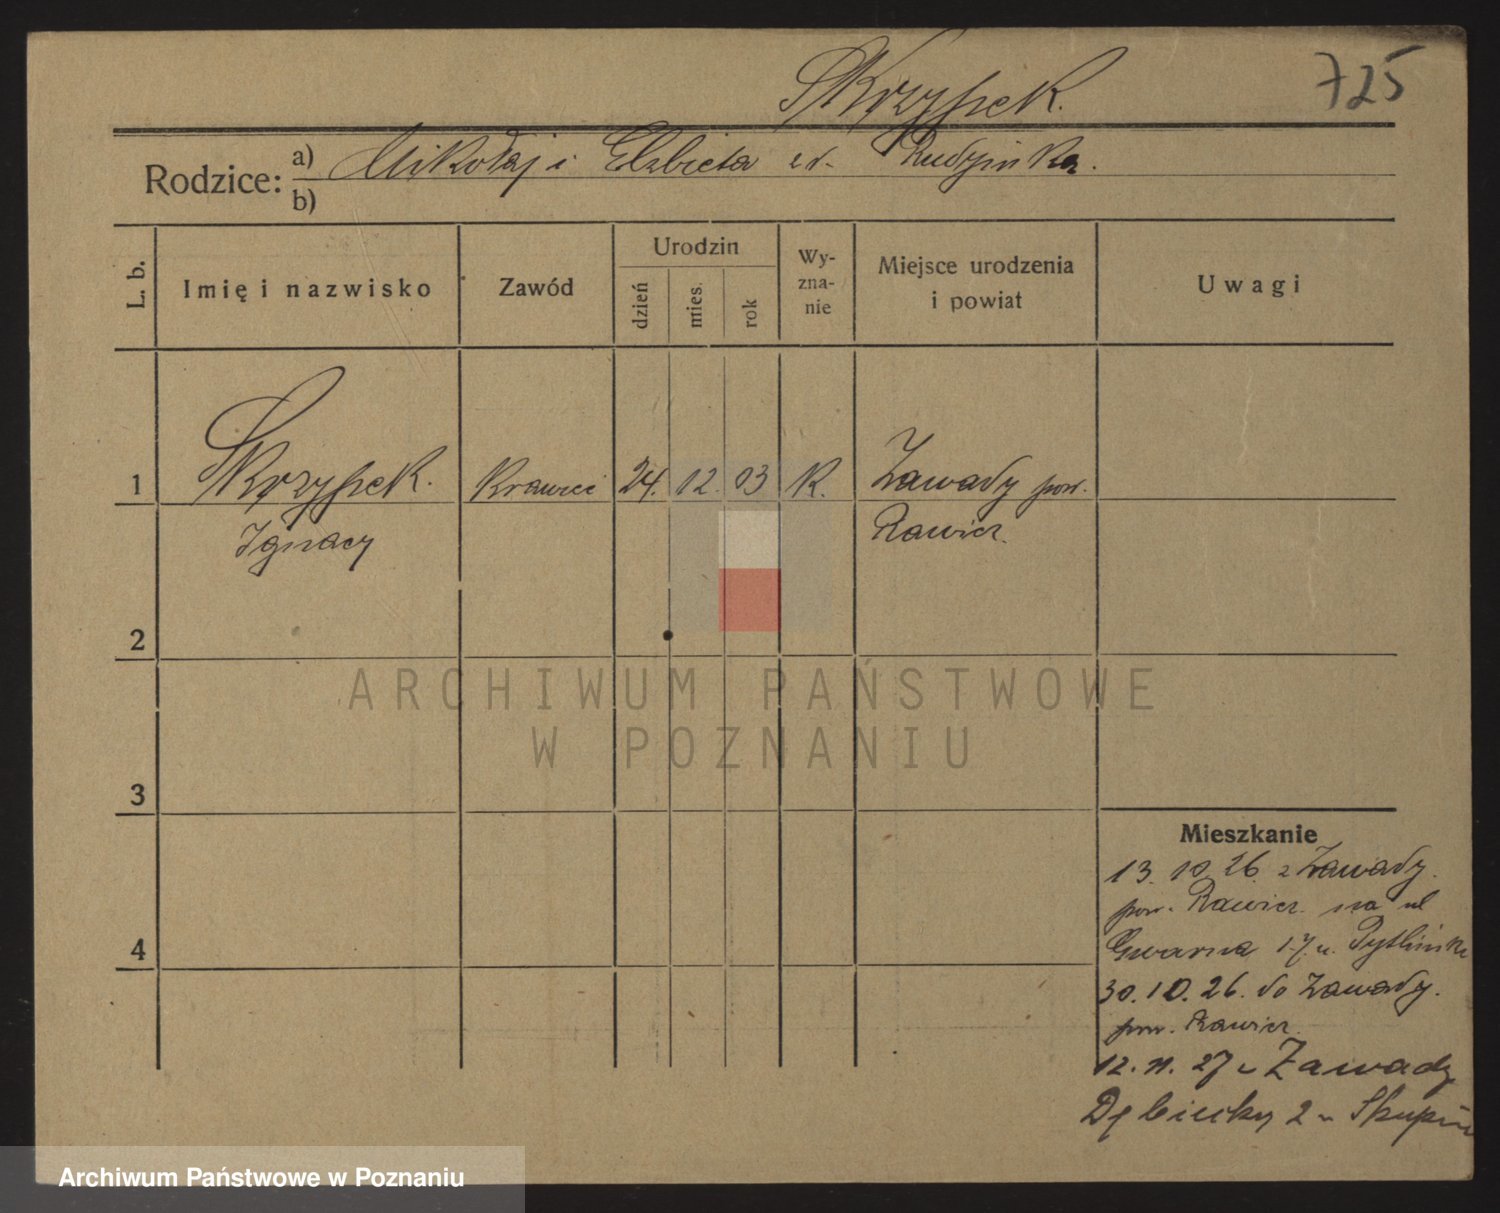 Skrzypek.
725
Rodzice: a) Mikołaj i Elżbieta zd. Rudzińska.
b)
L. b.
Imię i nazwisko
Zawód
Urodzin
dzień
mies.
rok
Wy-
zna-
nie
Miejsce urodzenia
i powiat
Uwagi
1 Skrzypek. Krawiec 24. 12. 03 K. Zawady pow.
Ignacy Rawicz.
2
ARCHIWUM PAŃSTWOWE
W POZNANIU
3
Mieszkanie
13. 10. 26 z Zawady.
pow. Rawicz na ul
4
Gwarna 17 u.
30. 10. 26. do Zawady.
pow. Rawicz.
12. 11. 27 Zawady
2
Archiwum Państwowe w Poznaniu